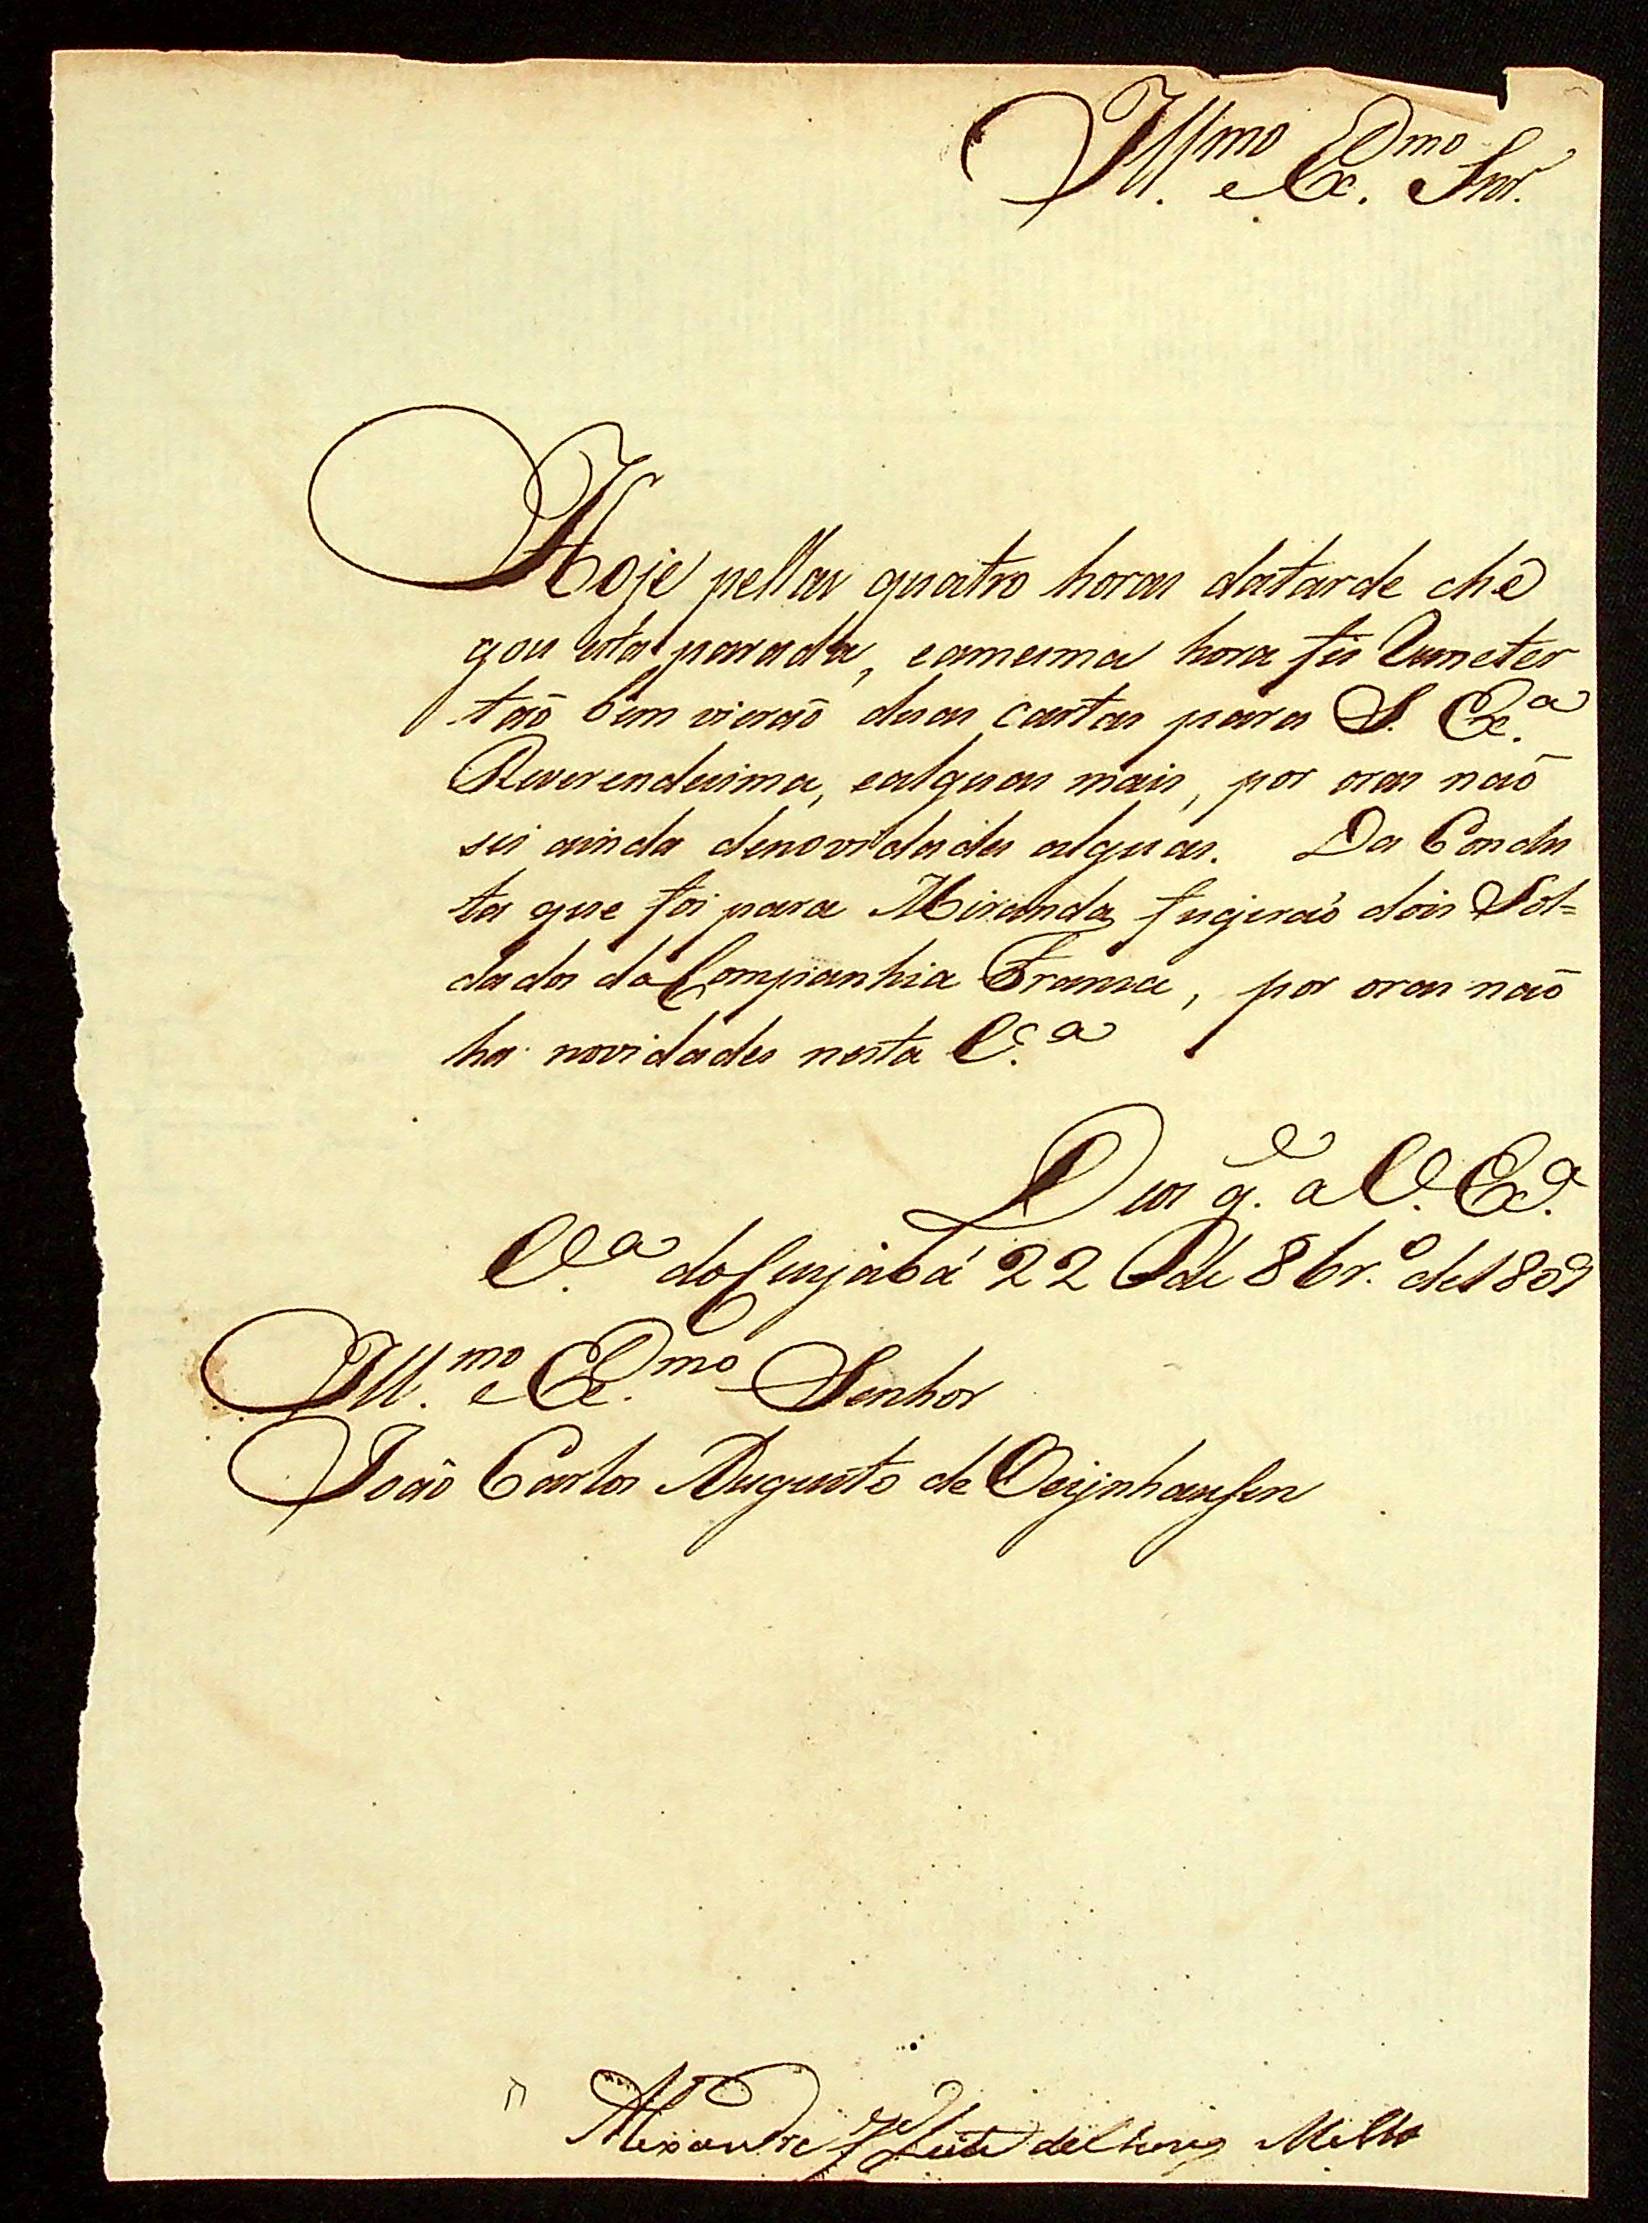 Ill.mo e Ex.mo Snr.
Hoje pellas quatro horas datarde che
gou esta parada, eamesma hora fis remeter
taõ bem vieraõ duas cartas para S. Ex.a
Reverendissima, ealguas mais, por oras naõ
sei ainda denovidades alguas. Da Condu
ta que foi para Miranda fugiraõ dois Sol=
dados da Companhia Franca, por oras naõ
ha novidades nesta V.a
Deos g.e a V. Ex.a
V.a do Cuyabá 22 de 8br.o de 1809
Ill.mo e Ex.mo Senhor
João Carlos Augusto de Oeijnhausen
Alexandre Jze Leite de Mello